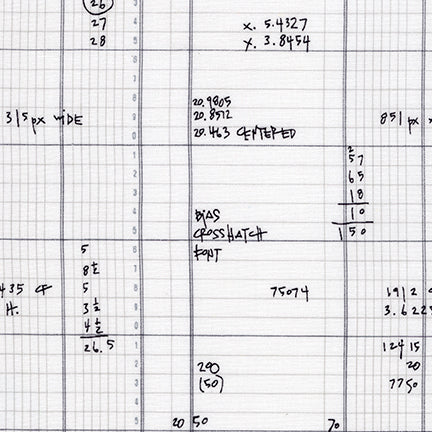 26
27
28
x. 5.4327
y. 3.8454
315px WIDE
20.9805
20.8512
20.463 CENTERED
851 px
2
57
65
18
10
150
BIAS
CROSSHATCH
FONT
5
8 1/2
5
3 1/2
4 1/2
26.5
435 CF
H.
75074
1912
3.622
290
(50)
12415
20
7750
20
50
70